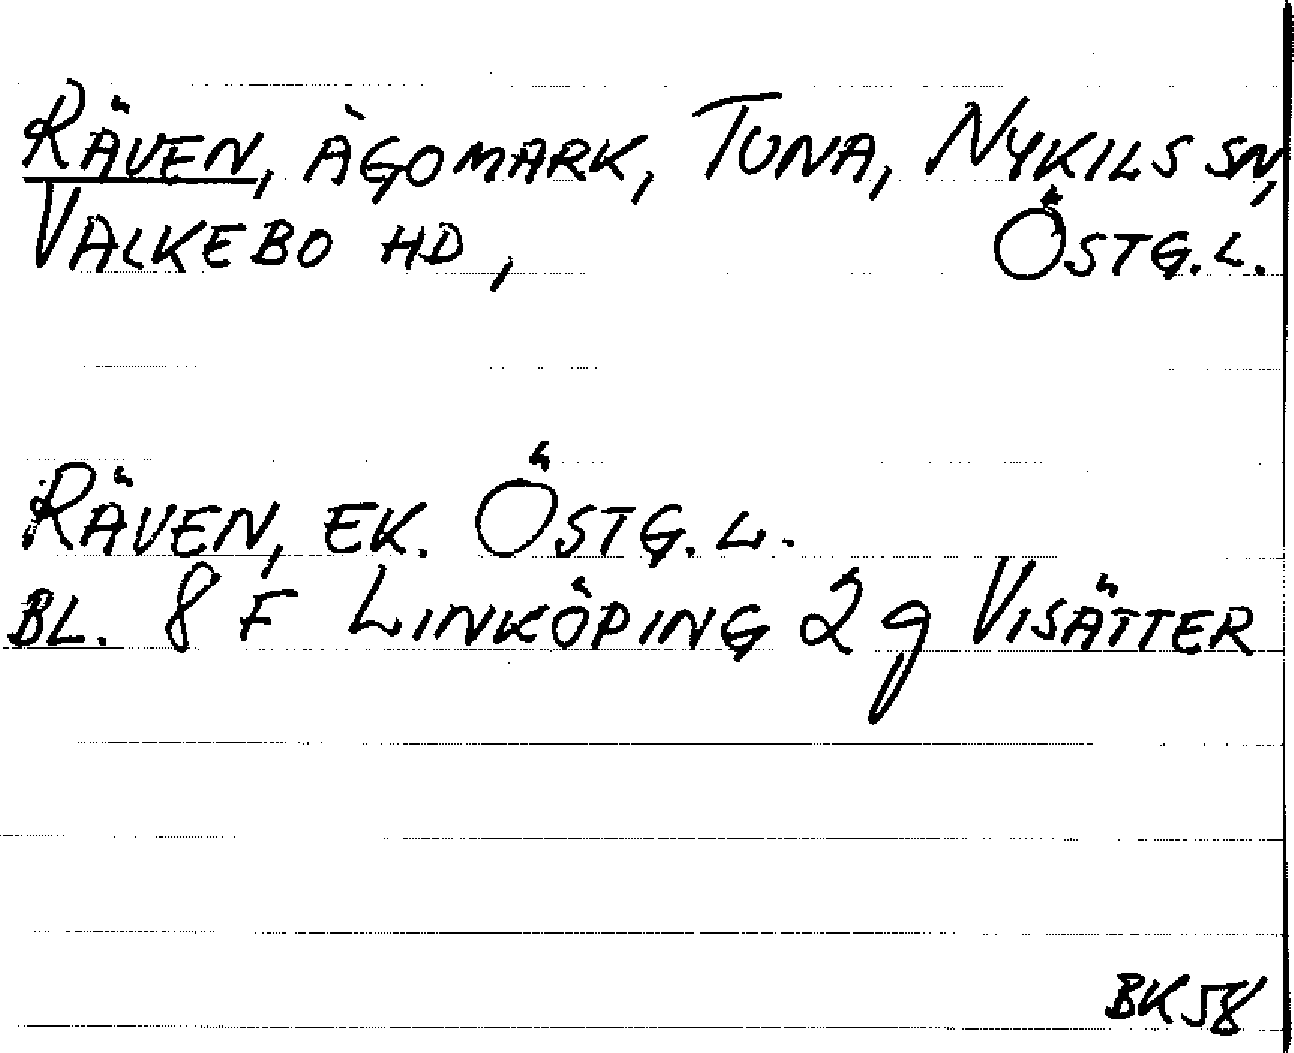 RÄVEN, ÄGOMARK, TUNA, NYKILS SN,
VALKEBO HD, ÖSTG.L.
RÄVEN, EK. ÖSTG.L.
BL. 8 F LINKÖPING 2 g VISÄTTER
BK 58